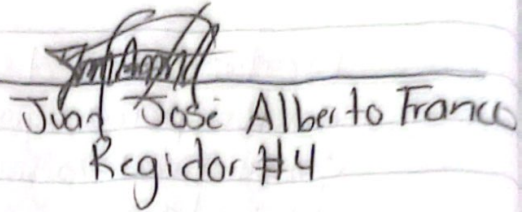 Juan José Alberto Franco
Regidor #4